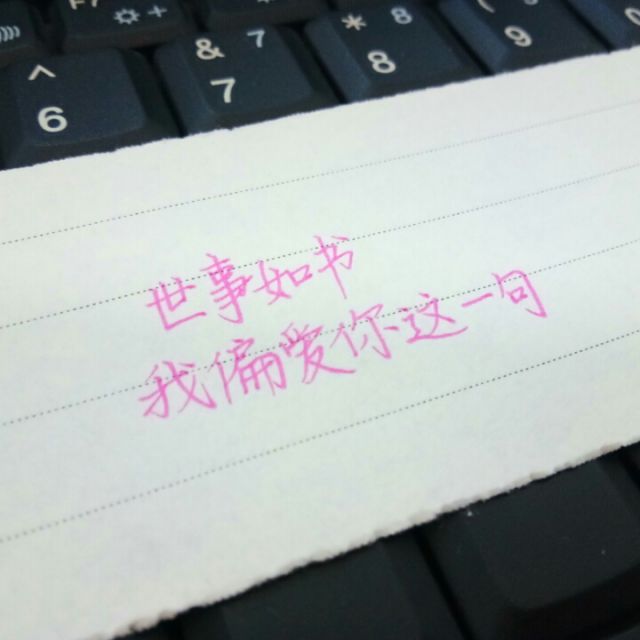 F7
^ & 7 * 8 (
6 7 8 9
世事如书
我偏爱你这一句